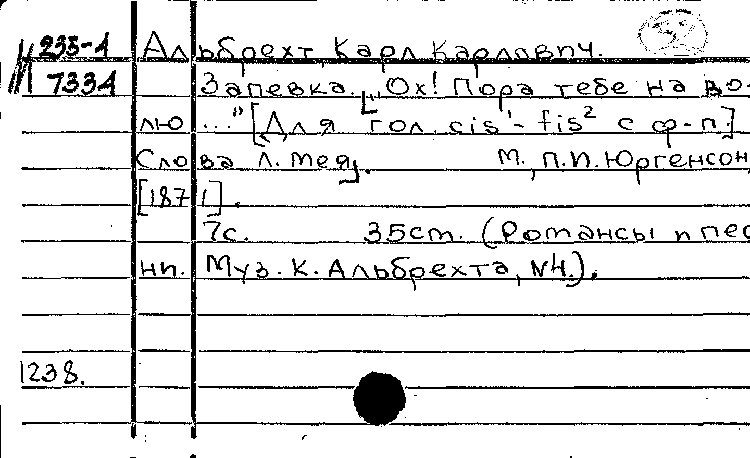 М 235-1 Альбрехт, Карл Карлович.
7334 Запевка. [„Ох! Пора тебе на во-
лю ..." [Для гол. cis¹-fis² с ф-п.]
Слова Л. Мея]. М., П.И. Юргенсон,
[1871].
7с. 35см. (Романсы и пес-
ни. Муз. К. Альбрехта, №4.).
1238.